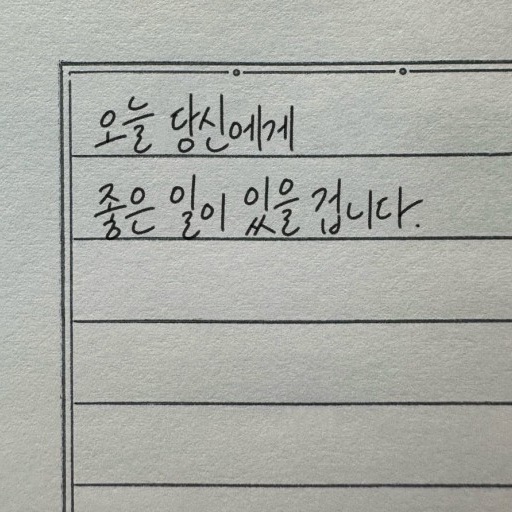 오늘 당신에게
좋은 일이 있을 겁니다.